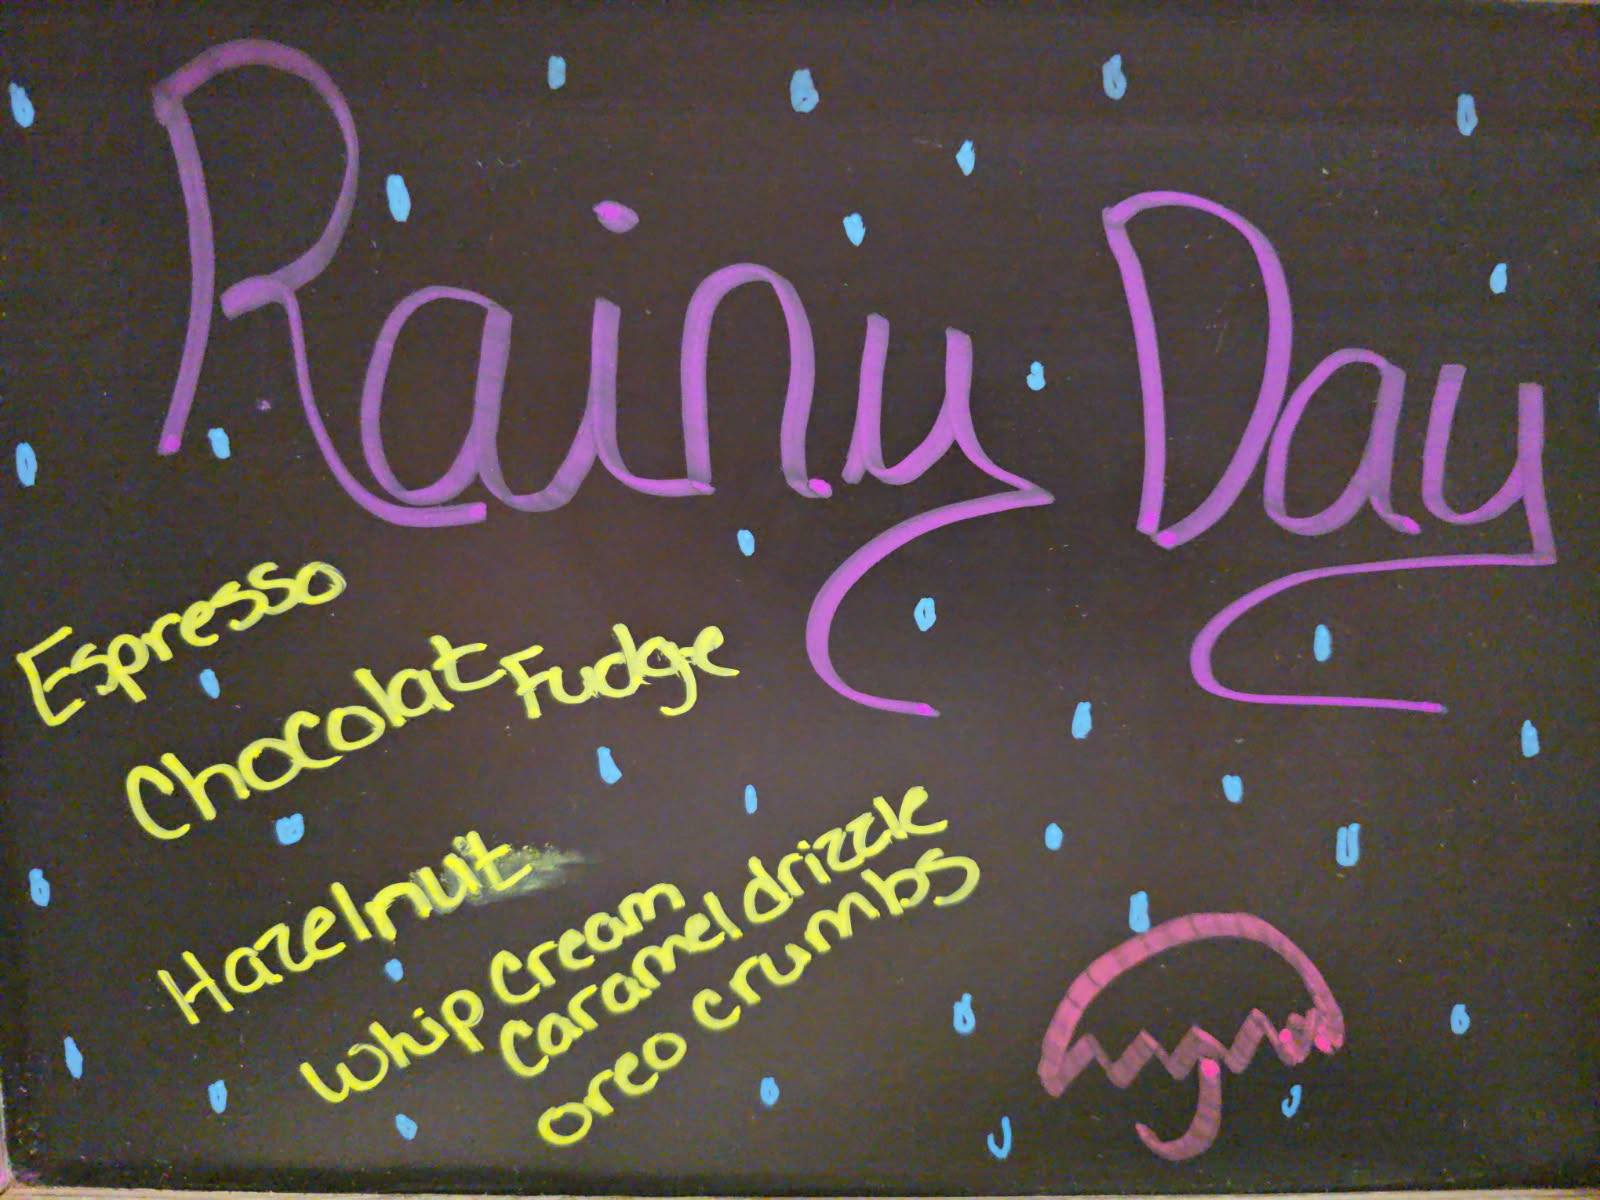 Rainy Day
Espresso
Chocolat Fudge
Hazelnut
Whip Cream
Caramel drizzle
oreo crumbs